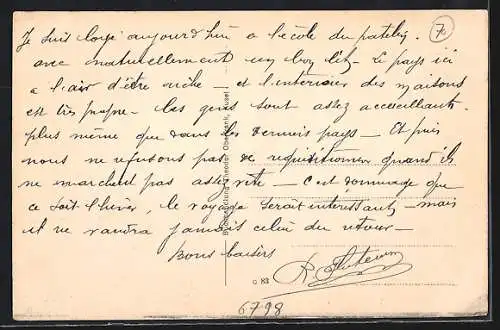 Je suis logé aujourd'hui à l'école du patelin,
avec naturellement un bon lit - Le pays ici
a l'air d'être riche - et l'intérieur des maisons
est très propre - les gens sont assez accueillants
plus même que dans les derniers pays - Et puis
nous ne refusons pas de réquisitionner quand ils
ne marchent pas assez vite - C'est dommage que
ce soit l'hiver, le voyage serait intéressant - mais
il ne vaudra jamais celui du retour -
Bons baisers
70
Theodor Oberzank,
G 83
6798